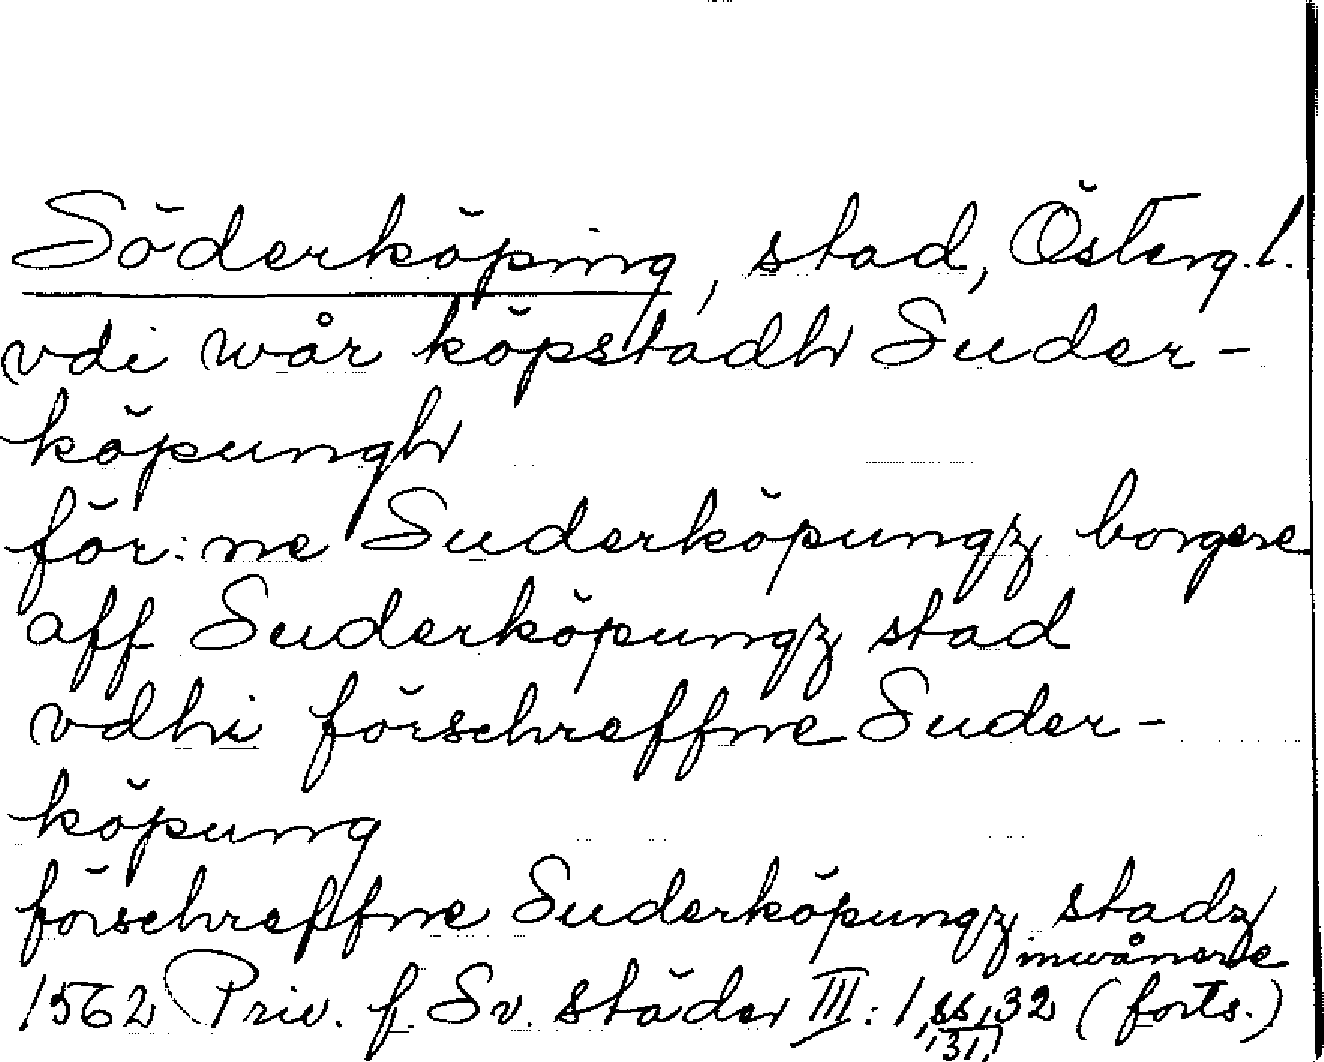 Söderköping, stad, Österg.l.
vdi wår köpstadh Suder-
köpungh
för:ne Suderköpungz borgere
aff Suderköpungz stad
vdhi förschreffne Suder-
köpung
förschreffne Suderköpungz stadz
inwånere
1562 Priv. f. Sv. städer III: 1, ss, 32 (forts.)
31,